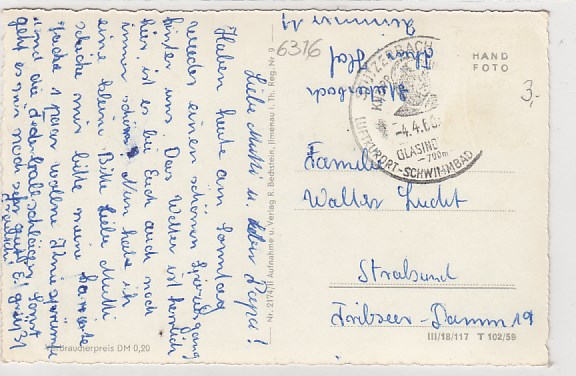 Liebe Mutti u. lieber Papa!
Haben heute am Sonntag
wieder einen schönen Spaziergang
hinter uns. Das Wetter ist herrlich
hier, ist es bei Euch auch noch
immer schön? Nun habe ich
eine kleine Bitte liebe Mutti
schicke mir bitte meine
Jacke 1 paar wollene
und die Federballschläger. Sonst
geht es mir noch sehr gut. Es grüßt
6376
Zimmer 11
Haf
Stützerbach
STÜTZERBACH
-4.4.60
GLASIND.
~700m
LUFTKURORT-SCHWIMMBAD
HAND
FOTO
3,-
Familie
Walter Lucht
Stralsund
Tribseer-Damm 19
III/18/117 T 102/59
Nr. 2174/II Aufnahme u. Verlag R. Bechstein, Ilmenau i. Th. Reg.-Nr. 9
Verbraucherpreis DM 0,20